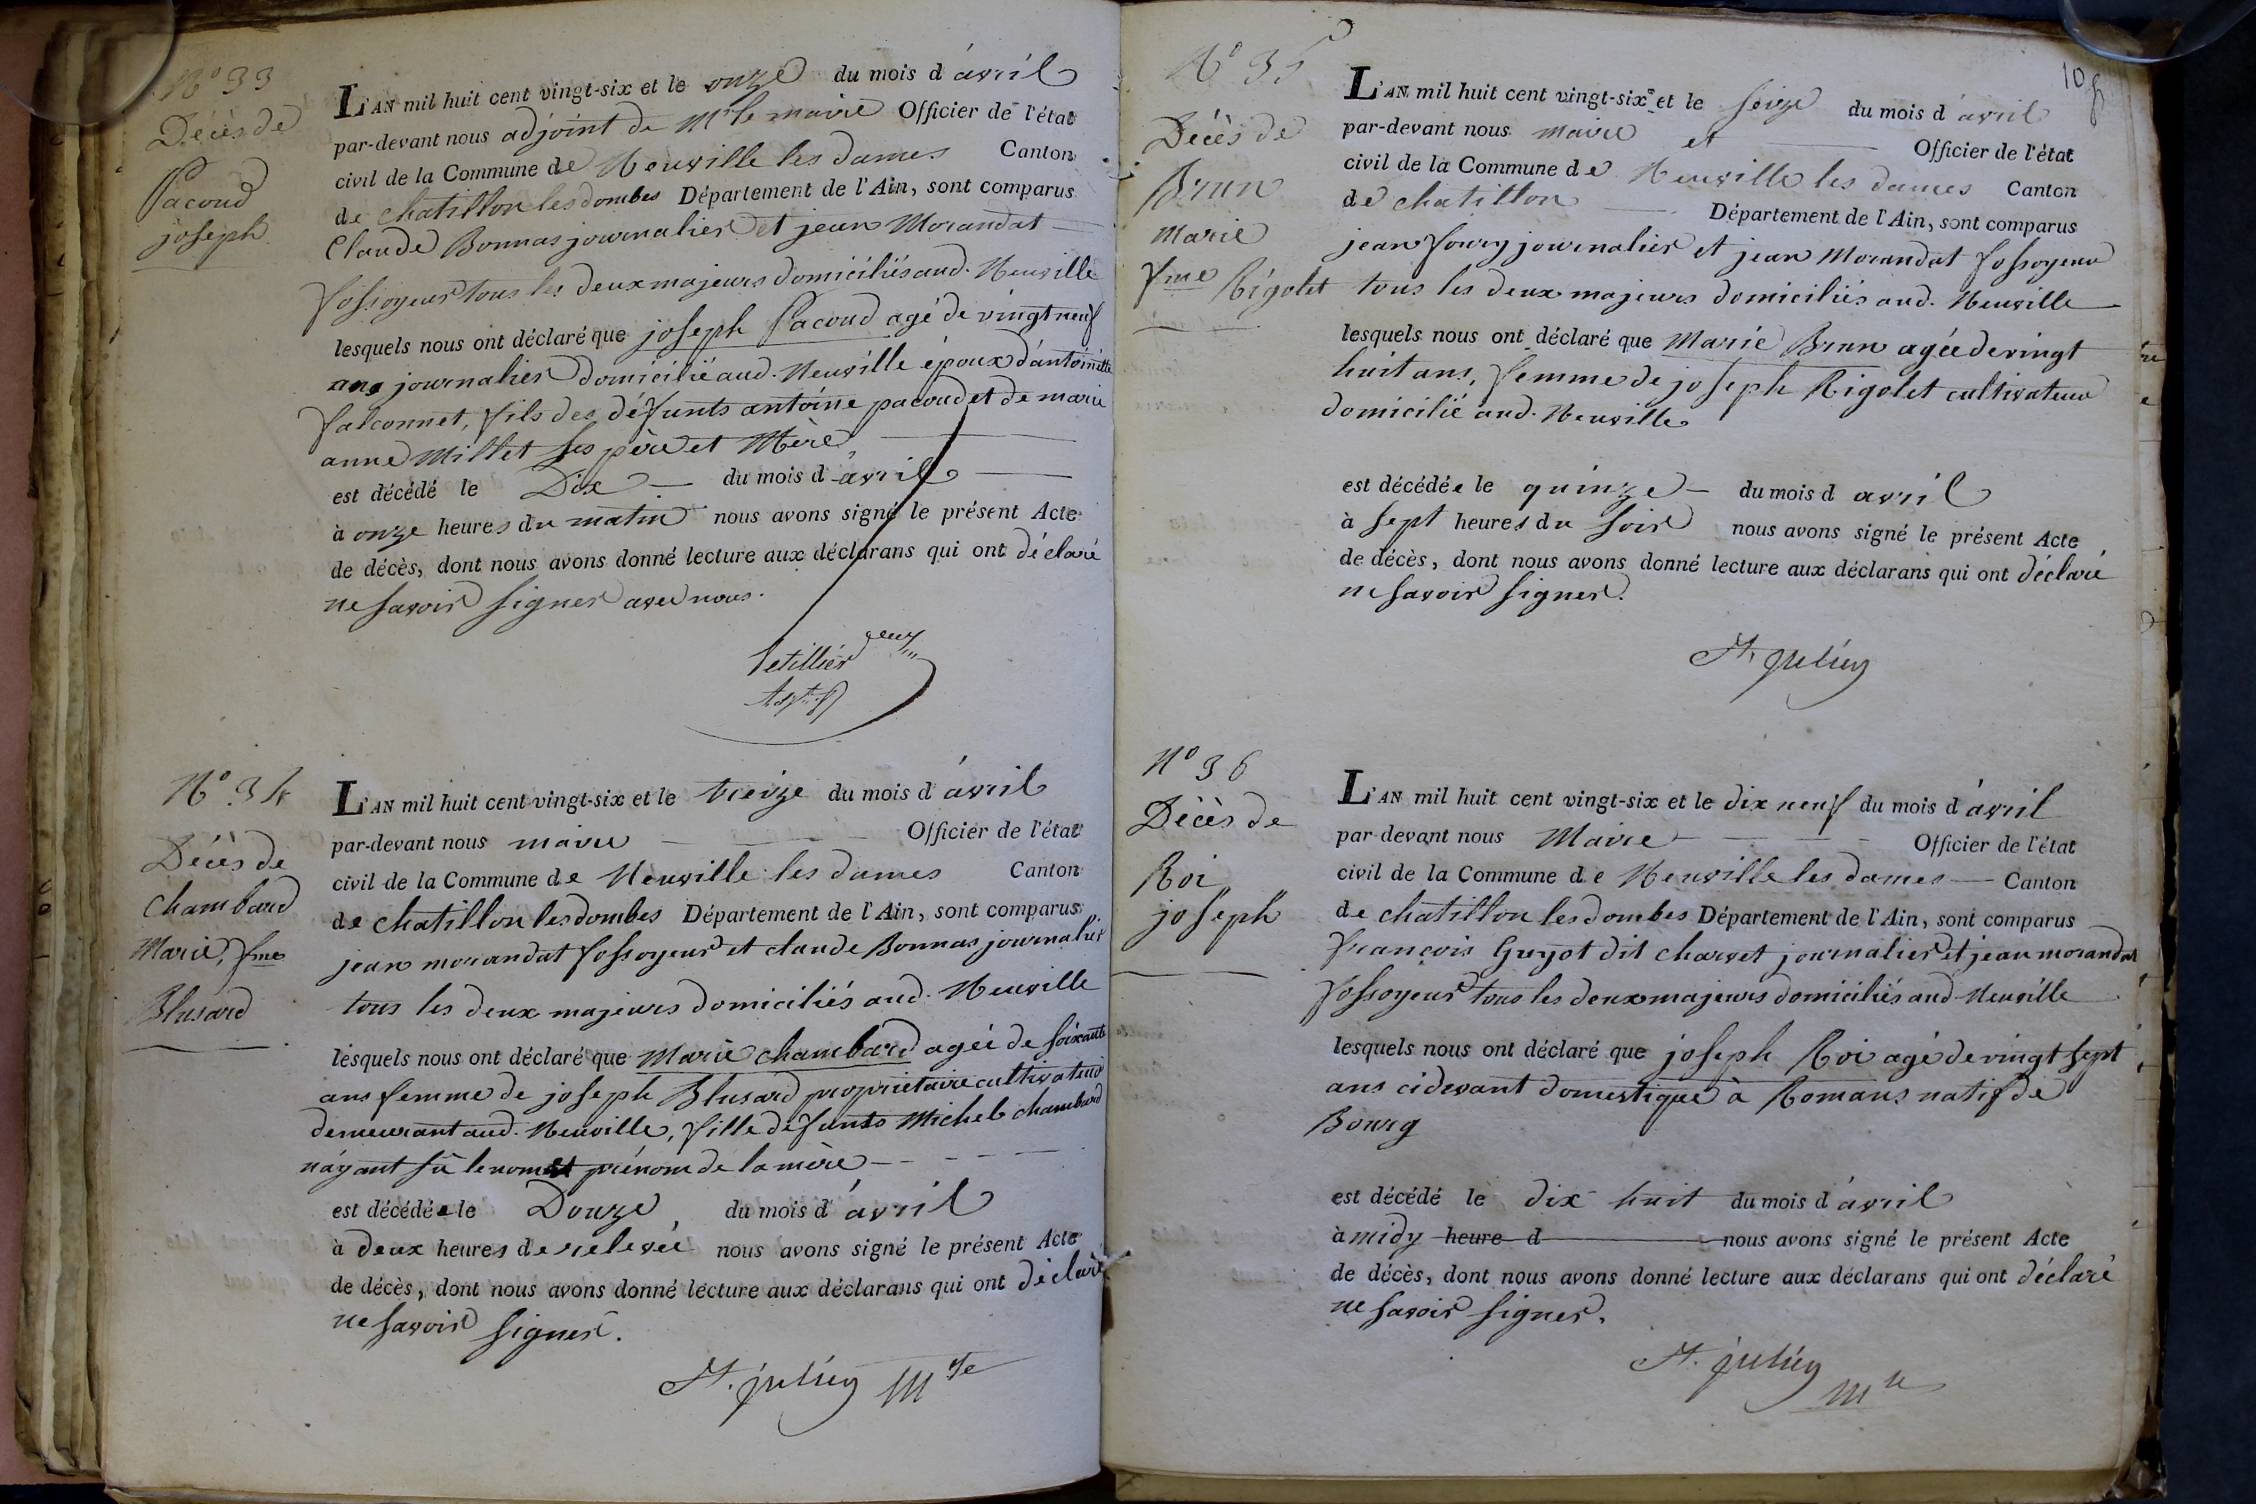 N° 33
Décès de
Pacoud
joseph
L'AN mil huit cent vingt-six et le onze du mois d'avril
par-devant nous adjoint de Mr le maire Officier de l'état
civil de la Commune de Neuville les dames Canton
de chatillon les dombes Département de l'Ain, sont comparus
Claude Bonnas journalier et jean Morandat
fossoyeur tous les deux majeurs domiciliés aud. Neuville
lesquels nous ont déclaré que joseph Pacoud agé de vingt neuf
ans journalier domicilié aud. Neuville époux d'antoinette
falconnet, fils des défunts antoine pacoud et de marie
anne Millet ses père et Mère
est décédé le Dix du mois d'avril
à onze heures du matin nous avons signé le présent Acte
de décès, dont nous avons donné lecture aux déclarans qui ont déclaré
ne savoir signer avec nous.
N° 34
Décès de
Chambard
Marie, fme
Blusard
L'AN mil huit cent vingt-six et le treize du mois d'avril
par-devant nous maire Officier de l'état
civil de la Commune de Neuville les dames Canton
de chatillon les dombes Département de l'Ain, sont comparus
jean morandat fossoyeur et claude Bonnas journalier
tous les deux majeurs domiciliés aud. Neuville
lesquels nous ont déclaré que Marie chambard agée de soixante
ans femme de joseph Blusard propriétaire cultivateur
demeurant aud. Neuville, fille defunts Michel chambard
n'ayant sû le nom et prénom de la mère
est décédée le Douze du mois d'avril
à deux heures de relevée nous avons signé le présent Acte
de décès, dont nous avons donné lecture aux déclarans qui ont déclaré
ne savoir signer.
St. julien Mre
10
N° 35
Décès de
Brun
Marie
fme Rigolet
L'AN mil huit cent vingt-six et le seize du mois d'avril
par-devant nous maire et Officier de l'état
civil de la Commune de Neuville les dames Canton
de chatillon Département de l'Ain, sont comparus
jean foury journalier et jean Morandat fossoyeur
tous les deux majeurs domiciliés aud. Neuville
lesquels nous ont déclaré que Marie Brun agée de vingt
huit ans, femme de joseph Rigolet cultivateur
domicilié aud. Neuville
est décédée le quinze du mois d avril
à sept heures du soir nous avons signé le présent Acte
de décès, dont nous avons donné lecture aux déclarans qui ont déclaré
ne savoir signer.
St. julien
N° 36
Décès de
Roi
joseph
L'AN mil huit cent vingt-six et le dix neuf du mois d'avril
par-devant nous Maire Officier de l'état
civil de la Commune de Neuville les dames Canton
de chatillon les dombes Département de l'Ain, sont comparus
françois Guyot dit charvet journalier et jean morandat
fossoyeur tous les deux majeurs domiciliés aud Neuville
lesquels nous ont déclaré que joseph Roi agé de vingt sept
ans cidevant domestique à Romans natif de
Bourg
est décédé le dix huit du mois d'avril
à midy heure d nous avons signé le présent Acte
de décès, dont nous avons donné lecture aux déclarans qui ont déclaré
ne savoir signer.
St. julien
Mre